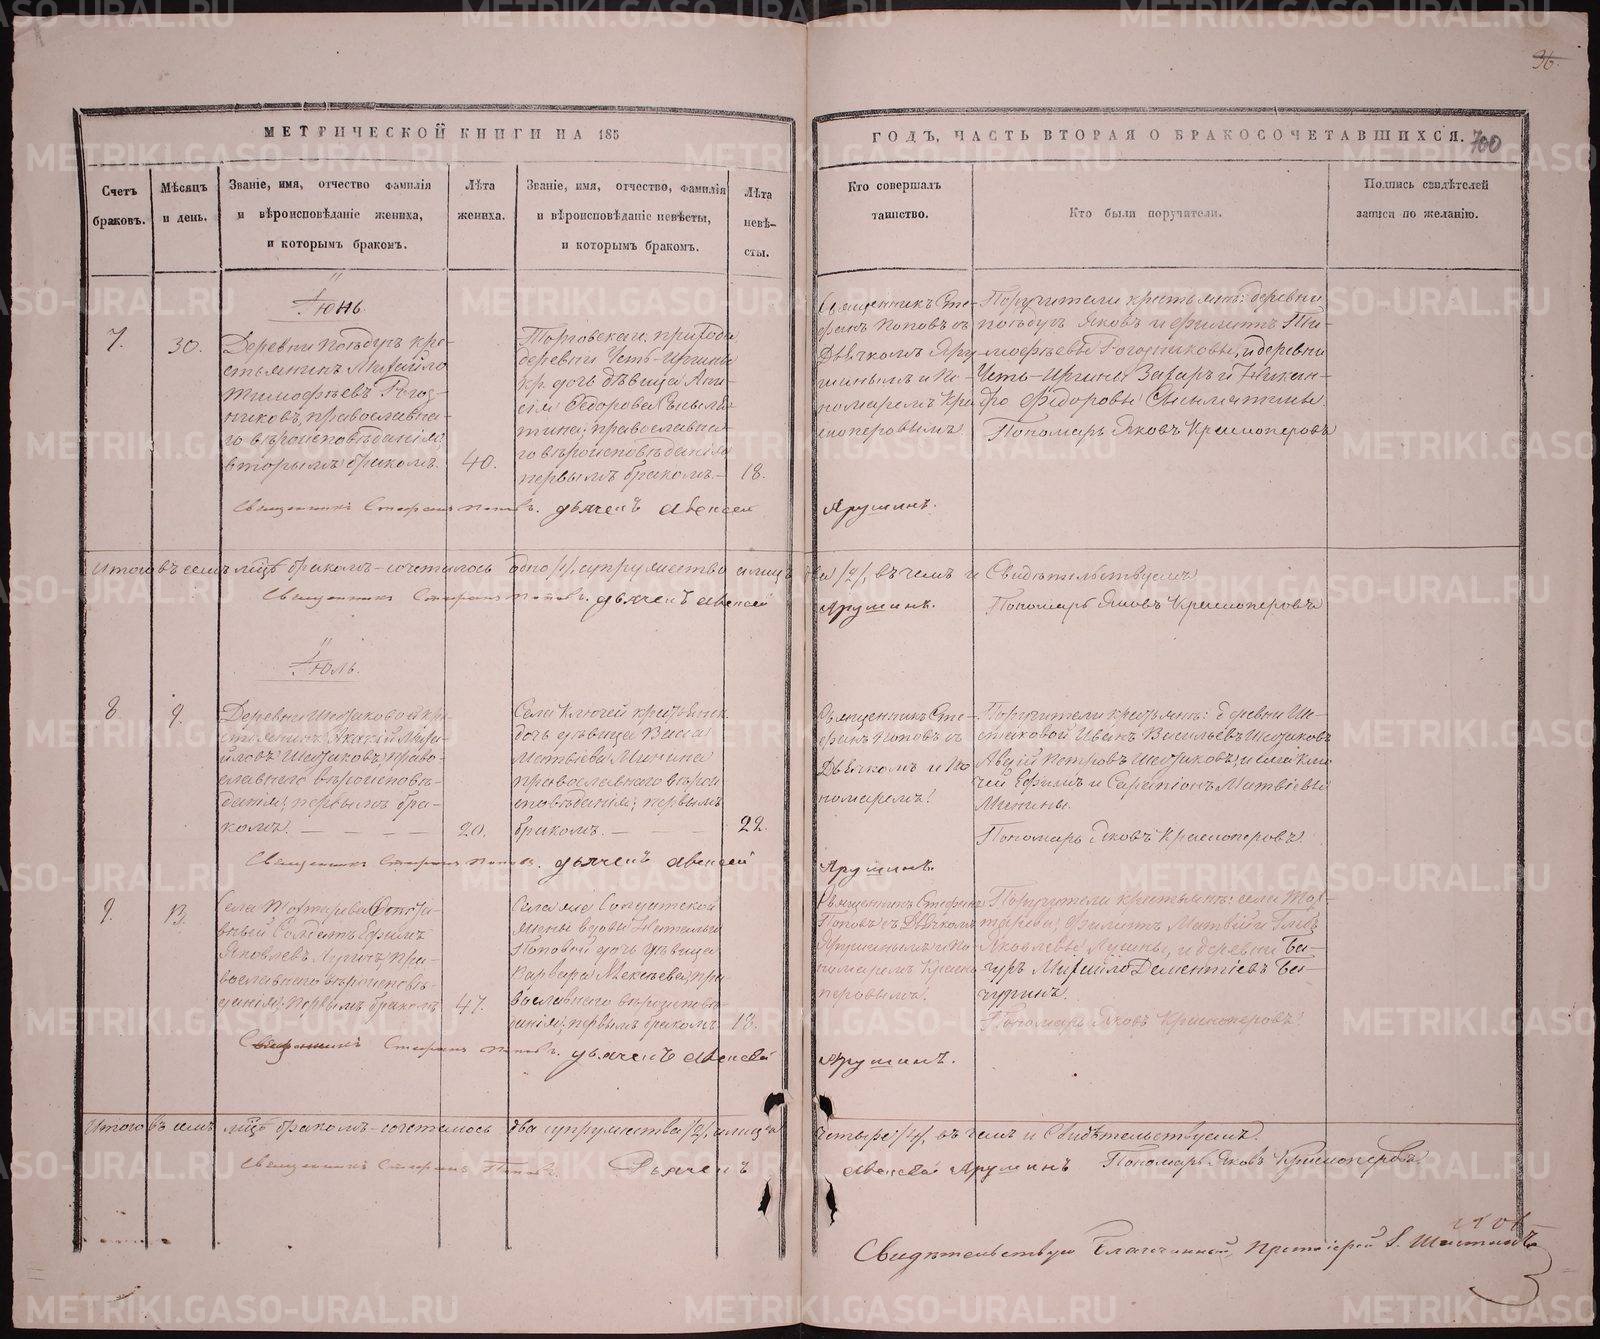 36.
МЕТРИЧЕСКОЙ КНИГИ НА 185
ГОДЪ, ЧАСТЬ ВТОРАЯ О БРАКОСОЧЕТАВШИХСЯ.
700
Счетъ браковъ.
Мѣсяцъ и день.
Званіе, имя, отчество фамилія
и вѣроисповѣданіе жениха,
и которымъ бракомъ.
Лѣта жениха.
Званіе, имя, отчество, фамилія
и вѣроисповѣданіе невѣсты,
и которымъ бракомъ.
Лѣта невѣ-
сты.
Кто совершалъ
таинство.
Кто были поручители.
Подпись свидѣтелей
записи по желанію.
Іюнь
7.
30.
Деревни кре-
стьянинъ Михайло
Тимофѣевъ Рогоз-
никовъ, православна-
го вѣроисповѣданія;
вторымъ бракомъ.
40.
Торговскаго прихода
деревни Усть-Иргины
кр. дочь дѣвица Ани-
сія Ѳедорова
православна-
го вѣроисповѣданія
первымъ бракомъ.
18.
Священникъ Сте-
фанъ Поповъ съ
Дьячкомъ Яру-
шинымъ и По-
номаремъ Кра-
сноперовымъ
Поручители крестьянъ: деревни
Яковъ и Филиппъ Ти-
мофѣевы Рогозниковы, и деревни
Усть-Иргины Захаръ и Никан-
Ѳедоровы
Пономарь Яковъ Красноперовъ
Священникъ Стефанъ Поповъ. Дьячекъ Алексей
Ярушинъ.
Итого въ семъ мѣсяцѣ бракомъ сочеталось одно /1/, супружество а лицъ два /2/, въ чемъ и Свидѣтельствуемъ
Священникъ Стефанъ Поповъ. Дьячекъ Алексей
Ярушинъ.
Пономарь Яковъ Красноперовъ
Іюль.
8
9.
Деревни Шестаковой кре-
стьянинъ Михай-
ловъ Шестаковъ, право-
славнаго вѣроисповѣ-
данія; первымъ бра-
комъ.
20.
Села Ключей крестьянск.
дочь дѣвица Васса
Матвѣева Минина
православнаго вѣрои-
сповѣданія; первымъ
бракомъ.
22.
Священникъ Сте-
фанъ Поповъ съ
Дьячкомъ и По-
номаремъ!
Поручители крестьянъ: деревни Ше-
стаковой Иванъ Васильевъ Шестаковъ
Петровъ Шестаковъ; и села Клю-
чей Ефимъ и Сарапіонъ Матвѣевы
Минины.
Пономарь Яковъ Красноперовъ
Священникъ Стефанъ Поповъ. Дьячекъ Алексей
Ярушинъ.
9.
13.
Села
Солдатъ Ефимъ
Яковлевъ пра-
вославнаго вѣроисповѣ-
данія; первымъ бракомъ
47.
Села Солдатской
жены вдовы Натальи
Поповой дочь дѣвица
Варвара Алексѣева, пра-
вославнаго вѣроисповѣ-
данія; первымъ бракомъ
18.
Священникъ Стефанъ
Поповъ съ Дьячкомъ
Ярушинымъ и По-
номаремъ Красно-
перовымъ!
Поручители крестьянъ: села
Филиппъ Матвѣй и
Яковлевы и деревни Ба-
чуръ Михайло Дементіевъ Ба-
чуринъ.
Пономарь Яковъ Красноперовъ!
Священникъ Стефанъ Поповъ. Дьячекъ Алексей
Ярушинъ.
Итого въ семъ мѣсяцѣ бракомъ сочеталось два супружества /2/, а лицъ четыре /4/, въ чемъ и Свидѣтельствуемъ.
Священникъ Стефанъ Поповъ. Дьячекъ
Алексей Ярушинъ Пономарь Яковъ Красноперовъ
Свидѣтельствую Благочинный, Протоіерей
METRIKI.GASO-URAL.RU